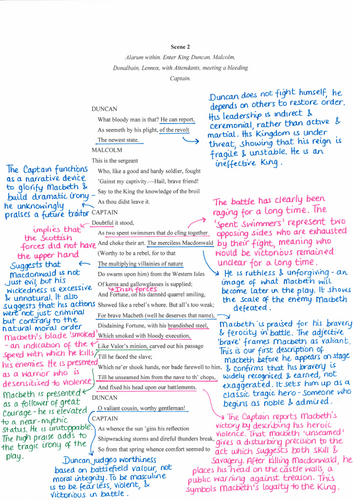 Scene 2
Alarum within. Enter King Duncan, Malcolm,
Donalbain, Lennox, with Attendants, meeting a bleeding
Captain.
Duncan does not fight himself, he
depends on others to restore order.
His leadership is indirect &
ceremonial rather than active &
martial. His Kingdom is under
threat, showing that his reign is
fragile & unstable. He is an
ineffective King.
DUNCAN
What bloody man is that? He can report,
As seemeth by his plight, of the revolt
The newest state.
MALCOLM
This is the sergeant
Who, like a good and hardy soldier, fought
'Gainst my captivity.—Hail, brave friend!
Say to the King the knowledge of the broil
As thou didst leave it.
CAPTAIN
Doubtful it stood,
As two spent swimmers that do cling together
And choke their art. The merciless Macdonwald
(Worthy to be a rebel, for to that
The multiplying villainies of nature
Do swarm upon him) from the Western Isles
Of kerns and gallowglasses is supplied;
And Fortune, on his damned quarrel smiling,
Showed like a rebel's whore. But all's too weak;
For brave Macbeth (well he deserves that name),
Disdaining Fortune, with his brandished steel,
Which smoked with bloody execution,
Like Valor's minion, carved out his passage
Till he faced the slave;
Which ne'er shook hands, nor bade farewell to him,
Till he unseamed him from the nave to th' chops,
And fixed his head upon our battlements.
DUNCAN
O valiant cousin, worthy gentleman!
CAPTAIN
As whence the sun 'gins his reflection
Shipwracking storms and direful thunders break,
So from that spring whence comfort seemed to
The Captain functions
as a narrative device
to glorify Macbeth &
build dramatic irony -
he unknowingly
praises a future traitor
implies that
the Scottish
forces did not have
the upper hand
Suggests that
Macdonwald is not
just evil but his
wickedness is excessive
& unnatural. It also
suggests that his actions
were not just criminal
but contrary to the
natural moral order
Irish forces
Macbeth's blade 'smoked'
- an indication of the
speed with which he kills
his enemies. He is presented
as a warrior who is
desensitised to violence
Macbeth is presented
as a follower of great
courage - he is elevated
to a near-mythic
status. He is unstoppable.
The high praise adds to
the tragic irony of the
play.
The battle has clearly been
raging for a long time. The
'spent swimmers' represent two
opposing sides who are exhausted
by their fight, meaning who
would be victorious remained
unclear for a long time.
He is ruthless & unforgiving - an
image of what Macbeth will
become later in the play. It shows
the scale of the enemy Macbeth
defeated.
Macbeth is praised for his bravery
& ferocity in battle. The adjective
'brave' frames Macbeth as valiant.
This is our first description of
Macbeth before he appears on stage
& confirms that his bravery is
widely recognised & earned, not
exaggerated. It sets him up as a
classic tragic hero - someone who
begins as noble & admired.
The Captain reports Macbeth's
victory by describing his heroic
violence. That Macbeth 'unseamed'
gives a disturbing precision to the
act which suggests both skill &
Savagery. After killing Macdonwald, he
places his head on the castle walls, a
public warning against treason. This
symbols Macbeth's loyalty to the King.
Duncan judges worthiness
based on battlefield valour, not
moral integrity. To be masculine
is to be fearless, violent, &
victorious in battle.